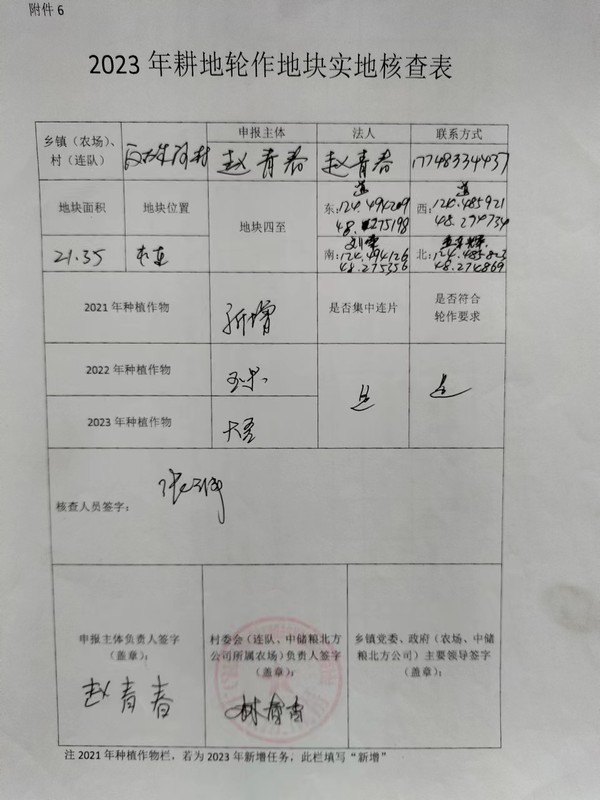 附件 6
2023 年耕地轮作地块实地核查表
乡镇（农场）、
村（连队）
村
申报主体
赵青春
法人
赵青春
联系方式
17748334437
地块面积
21.35
地块位置
地块四至
东:
道
124.494209
西:
道
124.485921
48.274734
南:
124.494126
48.275356
北:
48.274869
2021 年种植作物
新增
是否集中连片
是
是否符合
轮作要求
是
2022 年种植作物
玉米
2023 年种植作物
大豆
核查人员签字：
申报主体负责人签字
（盖章）：
赵青春
村委会（连队、中储粮北方
公司所属农场）负责人签字
（盖章）：
乡镇党委、政府（农场、中储
粮北方公司）主要领导签字
（盖章）：
注 2021 年种植作物栏，若为 2023 年新增任务，此栏填写“新增”